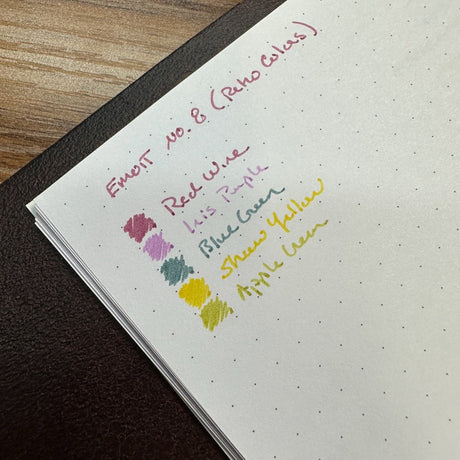 Emott No. 8 (Retro Colors)
Red Wine
Iris Purple
Blue Green
Straw Yellow
Apple Green